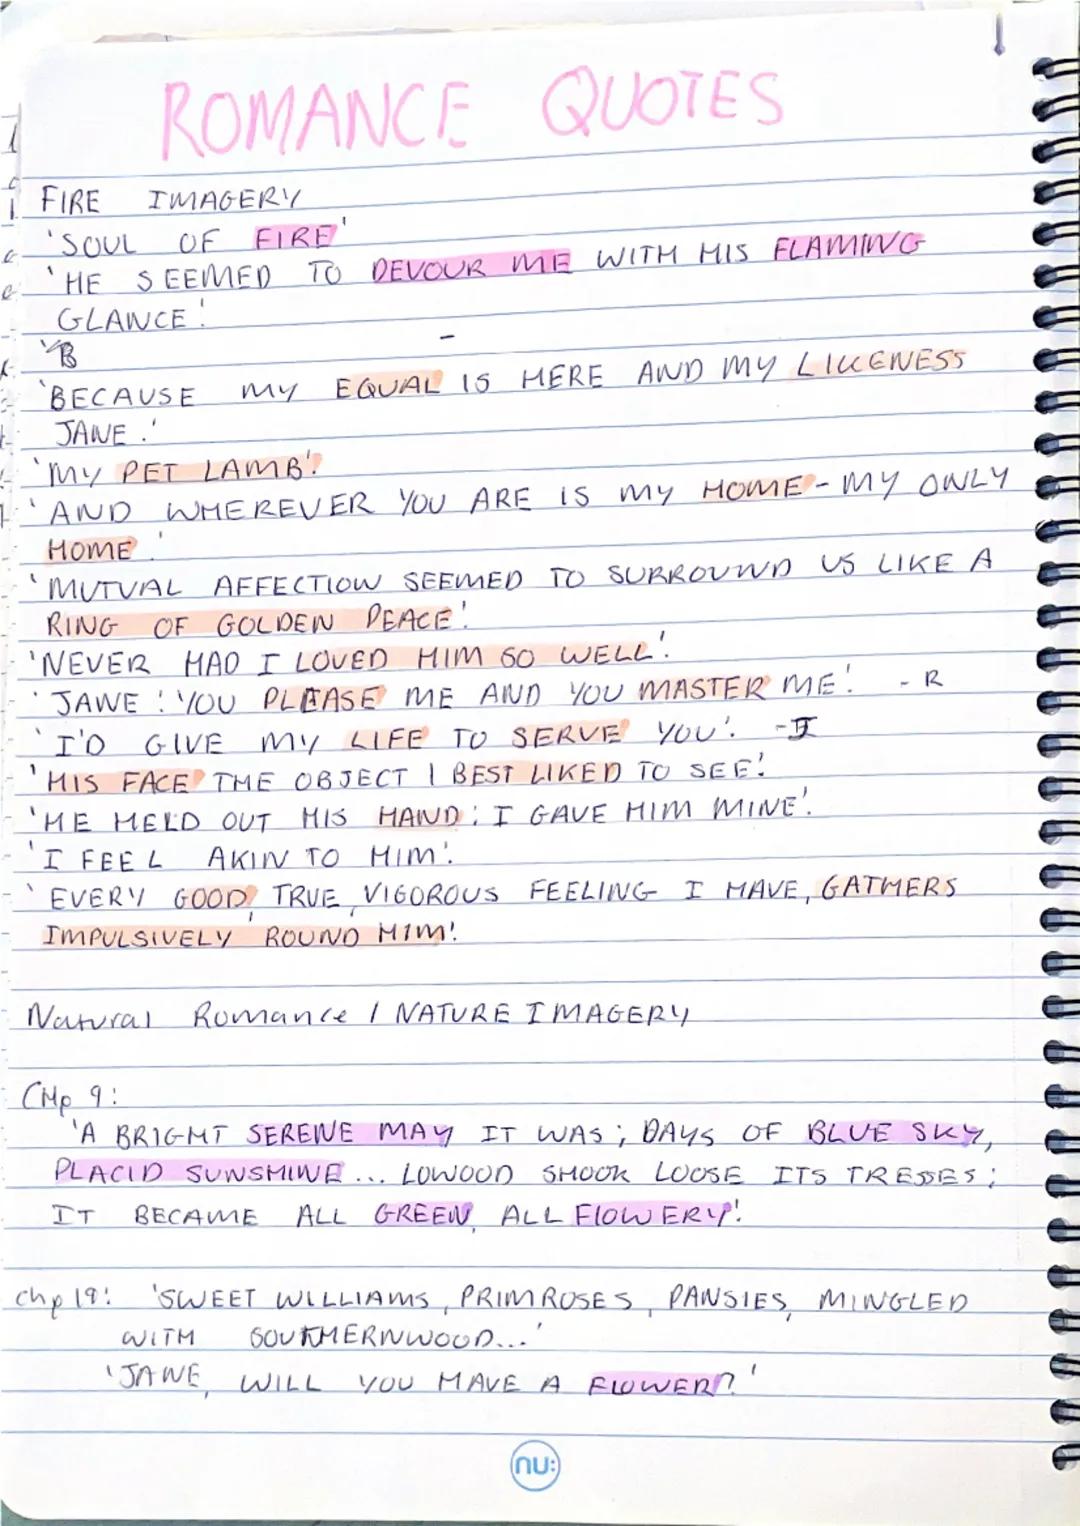 ROMANCE QUOTES
FIRE IMAGERY
'SOUL OF FIRE'
'HE SEEMED TO DEVOUR ME WITH HIS FLAMING
GLANCE'.
'B
'BECAUSE MY EQUAL IS HERE AND MY LIKENESS
JANE.'
'MY PET LAMB'.
'AND WHEREVER YOU ARE IS MY HOME - MY ONLY
HOME.'
'MUTUAL AFFECTION SEEMED TO SURROUND US LIKE A
RING OF GOLDEN PEACE'.
'NEVER HAD I LOVED HIM SO WELL'.
'JANE: YOU PLEASE ME AND YOU MASTER ME'. - R
'I'D GIVE MY LIFE TO SERVE YOU'. - J
'HIS FACE THE OBJECT I BEST LIKED TO SEE'.
'HE HELD OUT HIS HAND: I GAVE HIM MINE'.
'I FEEL AKIN TO HIM'.
'EVERY GOOD, TRUE, VIGOROUS FEELING I HAVE, GATHERS
IMPULSIVELY ROUND HIM'.
Natural Romance / NATURE IMAGERY
CHp 9:
'A BRIGHT SERENE MAY IT WAS; DAYS OF BLUE SKY,
PLACID SUNSHINE... LOWOOD SHOOK LOOSE ITS TRESSES;
IT BECAME ALL GREEN, ALL FlOWERY'.
Chp 19: 'SWEET WILLIAMS, PRIMROSES, PANSIES, MINGLED
WITH SOUTHERNWOOD...'
'JANE, WILL YOU HAVE A FLOWER?'
nu: